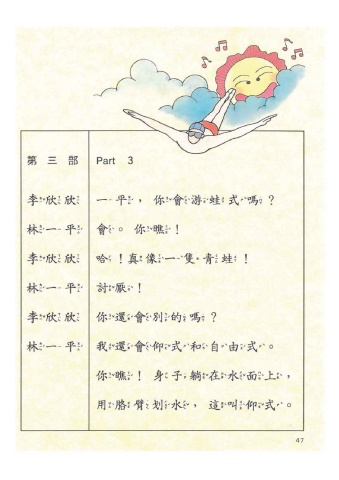 第三部 Part 3
李欣欣 一平，你會游蛙式嗎？
林一平 會。你瞧！
李欣欣 哈！真像一隻青蛙！
林一平 討厭！
李欣欣 你還會別的嗎？
林一平 我還會仰式和自由式。
你瞧！身子躺在水面上，
用胳臂划水，這叫仰式。
47